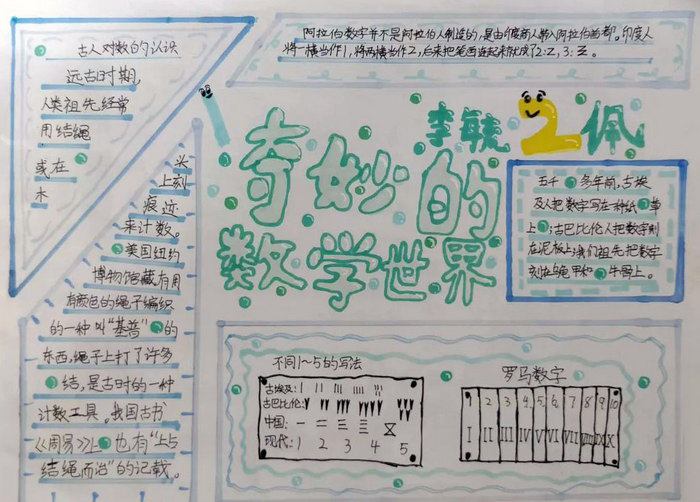 古人对数的认识
远古时期,
人类祖先经常
用结绳
或在
木
头
上刻
痕迹
来计数。
美国纽约
博物馆藏有用
有颜色的绳子编织
的一种叫“基普”的
东西,绳子上打了许多
结,是古时的一种
计数工具。我国古书
《周易》上也有“上与
结绳而治”的记载。
阿拉伯数字并不是阿拉伯人制造的,是由印度商人带入阿拉伯首都。印度人
将一横当作1,将两横当作2,后来把笔画连起来就成了2:Z,3:
李 2 佩
奇妙的
数学世界
五千多年前,古埃
及人把数字写在种纸草
上,古巴比伦人把数字刻
在泥板上,我们祖先把数字
刻在乌龟甲和牛骨上。
不同1~5的写法
古埃及: I II III IIII
古巴比伦:
中国: 一 二 三 三 X
现代: 1 2 3 4 5
罗马数字
1 2 3 4 5 6 7 8 9 10
I II III IV V VI VII VIII IX X